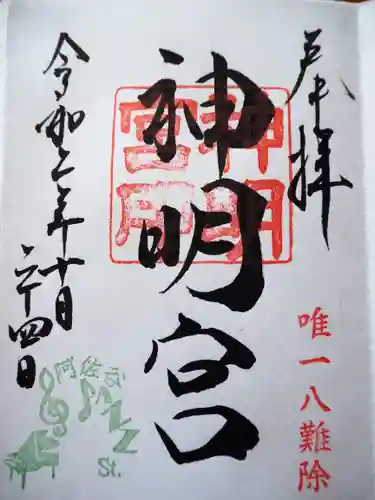 奉拝
唯一八難除
神明宮
神明
宮印
令和六年十月
二十四日
阿佐谷
JAZZ
St.